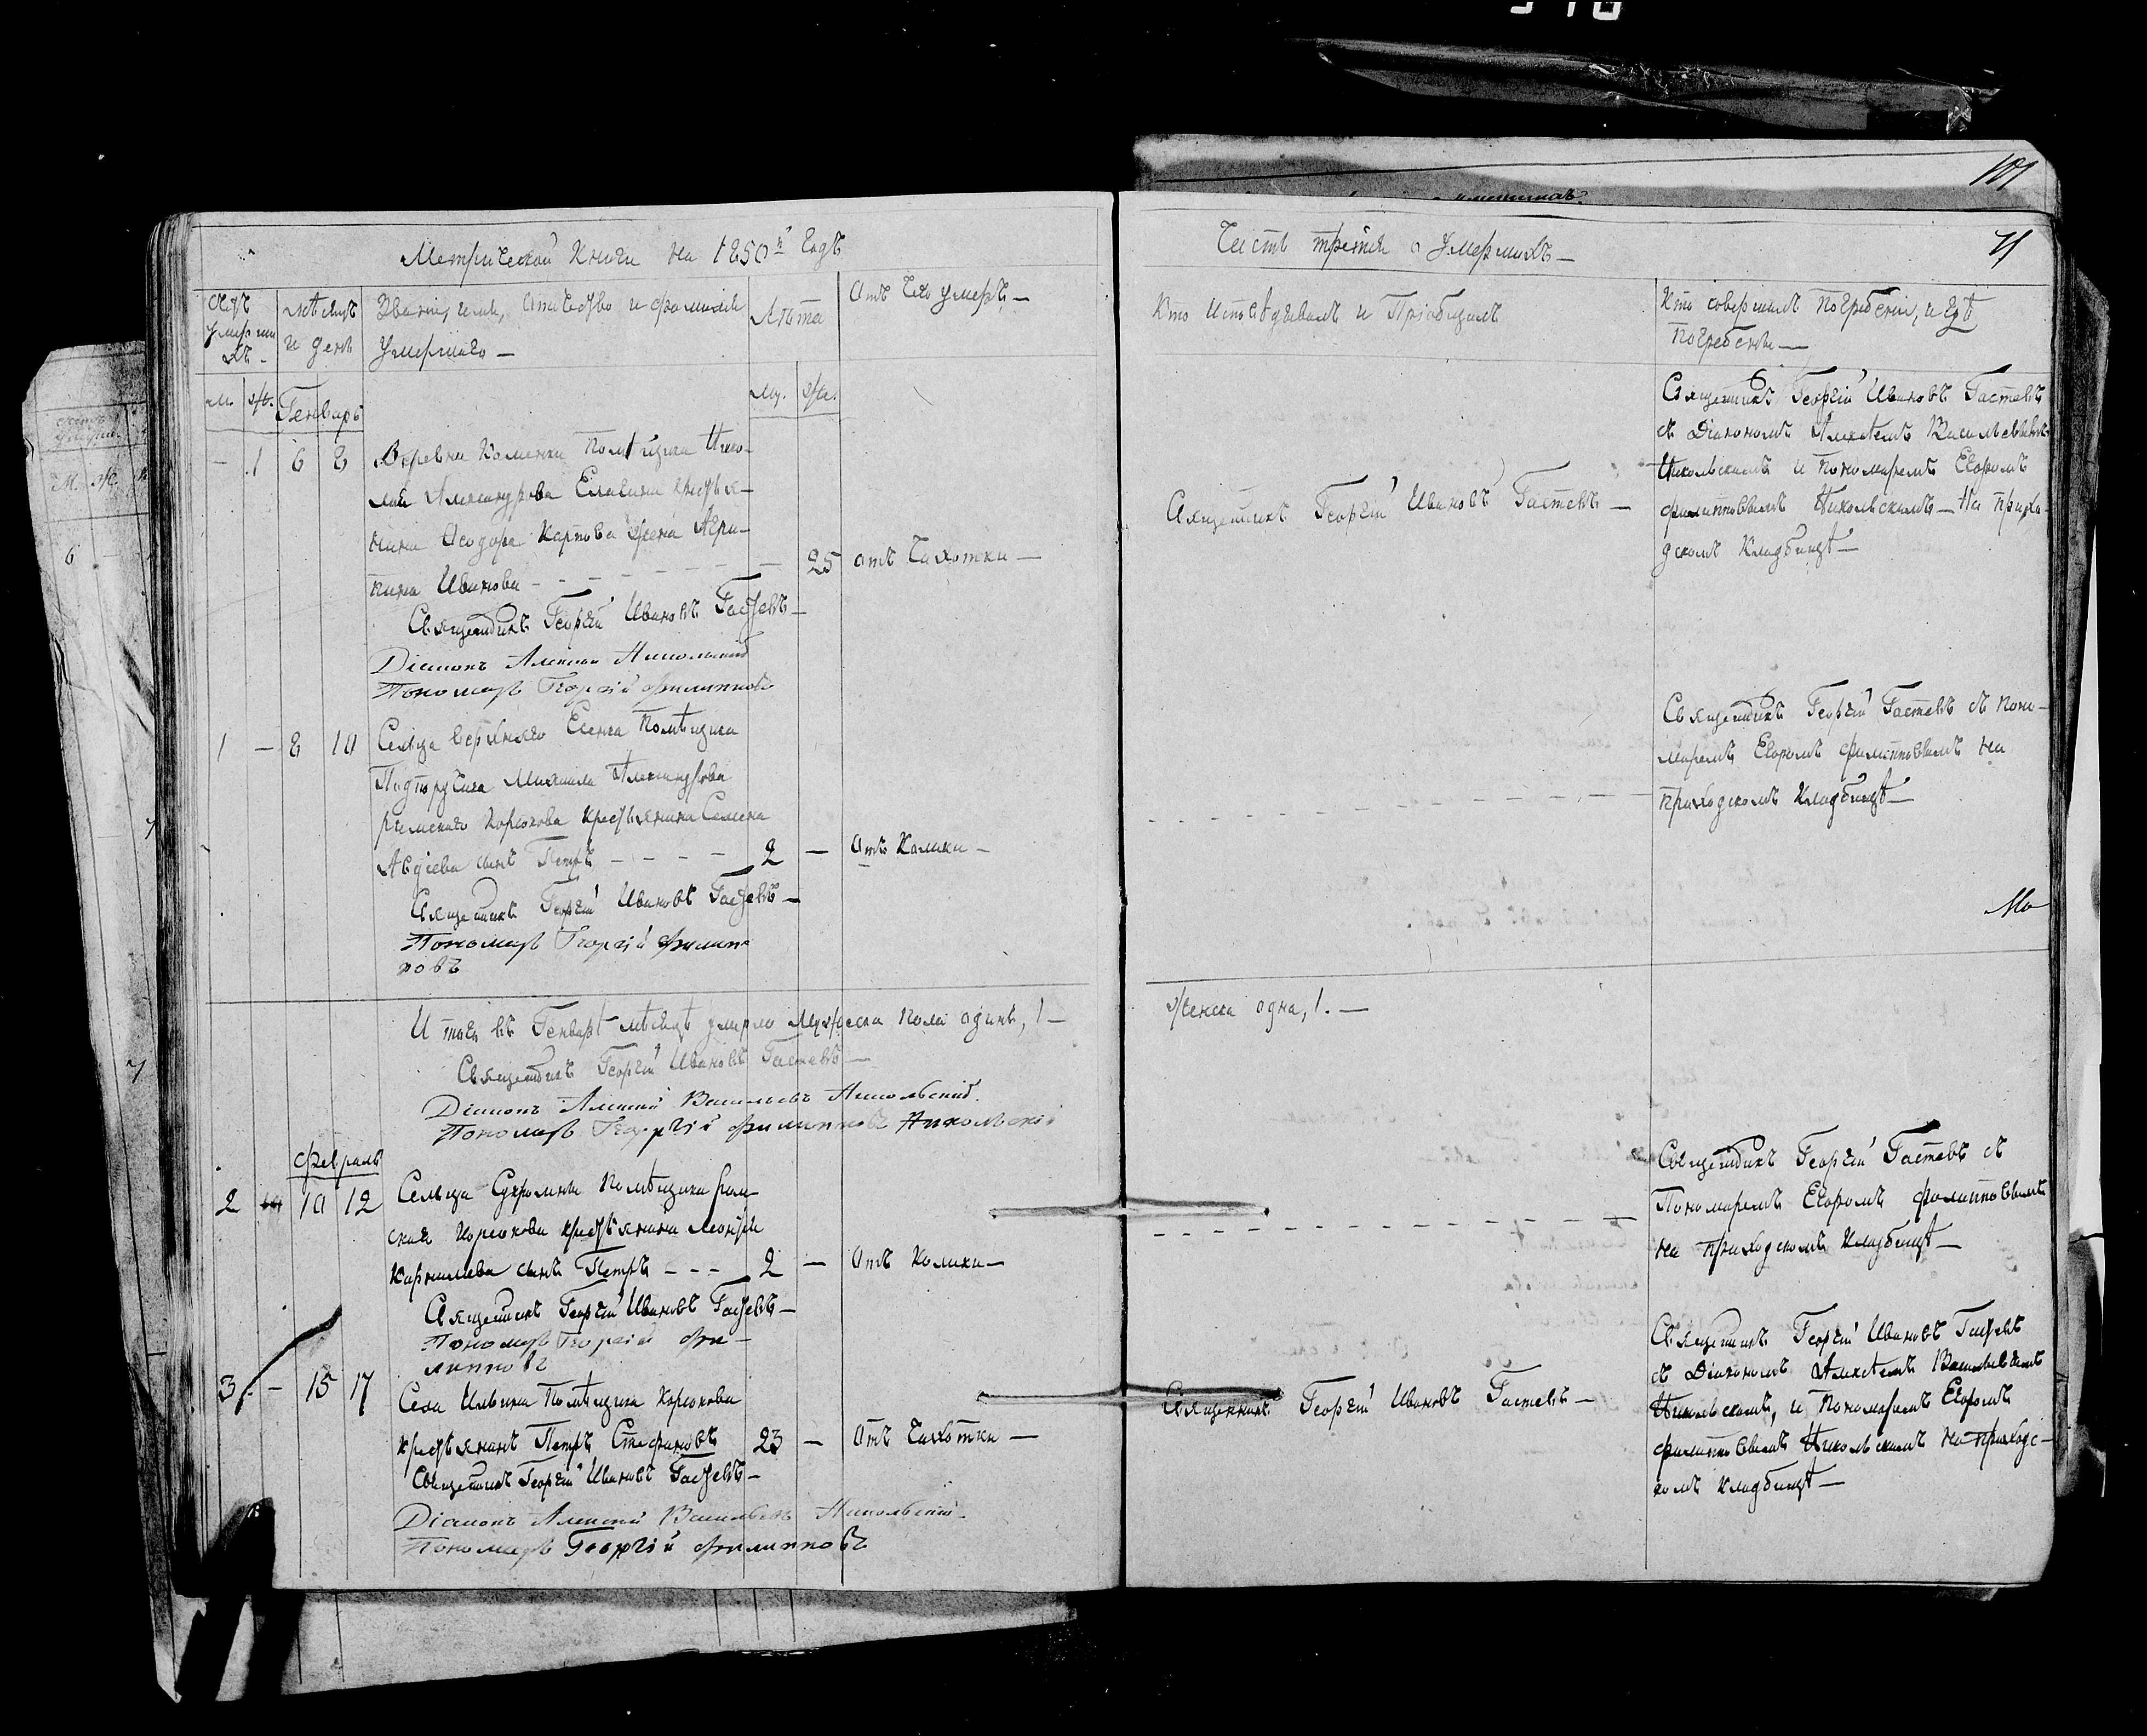 Метрической Книги на 1850й Годъ
Часть третія о Умершихъ —
71
101
Счетъ умершихъ.
Мѣсяцъ и день
Званіе, имя, отечество и фамилія
умершаго —
Лѣта
Отъ чего умеръ —
Кто исповѣдывалъ и Пріобщалъ
Кто совершалъ погребеніе, и гдѣ
погребены —
м. ж.
Генварь
му. же.
— 1 6 8
Деревни Каменки Помѣщика Нико-
лая Александрова Елагина крестья-
нина Ѳеодора Карпова жена Агри-
пина Иванова
25
отъ Чахотки —
Священникъ Георгій Ивановъ Гастевъ —
Діаконъ Алексій Никольский
Пономарь Георгій Филипповъ
Священникъ Георгій Ивановъ Гастевъ —
Священникъ Георгій Ивановъ Гастевъ
съ Діакономъ Алексѣемъ Васильевымъ
Никольскимъ и Пономаремъ Егоромъ
Филипповымъ Никольскимъ — На прихо-
дскомъ Кладбищѣ —
1 — 8 10
Сельца Верхняго Помѣщика
Подпорутчика Михаила Александрова
римскаго Корсакова крестьянина Семена
Авдіева сынъ Петръ — — — —
2 —
Отъ Колики —
Священникъ Георгій Ивановъ Гастевъ —
Пономарь Георгій Филип
повъ
Священникъ Георгій Гастевъ съ Поно-
маремъ Егоромъ Филипповымъ на
приходскомъ Кладбищѣ —
И того въ Генварѣ мѣсяцѣ умерло Мужеска пола одинъ, 1 —
женска одна, 1. —
Священникъ Георгій Ивановъ Гастевъ —
Діаконъ Алексій Васильевъ Никольский.
Пономарь Георгій Филипповъ Никольскій
Февраль
2 10 12
Сельца Помѣщика рим-
скаго Корсакова крестьянина Леонтія
Карнилиева сынъ Петръ — — —
2 —
Отъ Колики —
Священникъ Георгій Ивановъ Гастевъ —
Пономарь Георгій Фи-
липповъ
Священникъ Георгій Гастевъ съ
Пономаремъ Егоромъ Филипповымъ
на приходскомъ Кладбищѣ —
3 — 15 17
Села Ильина Помѣщика Корсакова
крестьянинъ Петръ Стефановъ
23 —
Отъ Чахотки —
Священникъ Георгій Ивановъ Гастевъ —
Діаконъ Алексій Васильевъ Никольский
Пономарь Георгій Филипповъ
Священникъ Георгій Ивановъ Гастевъ —
Священникъ Георгій Ивановъ Гастевъ
съ Діакономъ Алексѣемъ Васильевымъ
Никольскимъ, и Пономаремъ Егоромъ
Филипповымъ Никольскимъ на приходс-
комъ Кладбищѣ —